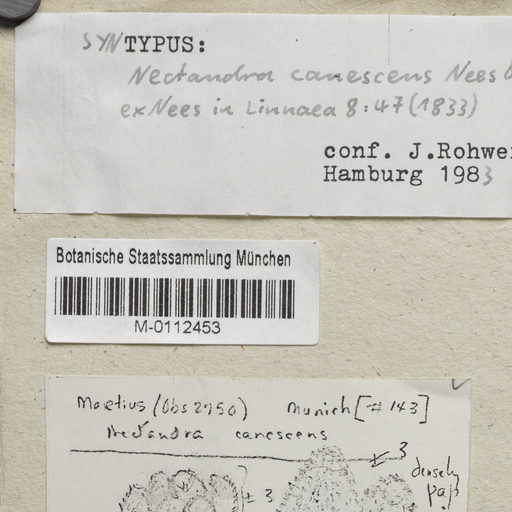 SYNTYPUS:
Nectandra canescens Nees
ex Nees in Linnaea 8:47 (1833)
conf. J.Rohwer
Hamburg 1983
Botanische Staatssammlung München
M-0112453
Martius (Obs 2750) Munich [#143]
Nectandra canescens
± 3
densely
± 3
pap